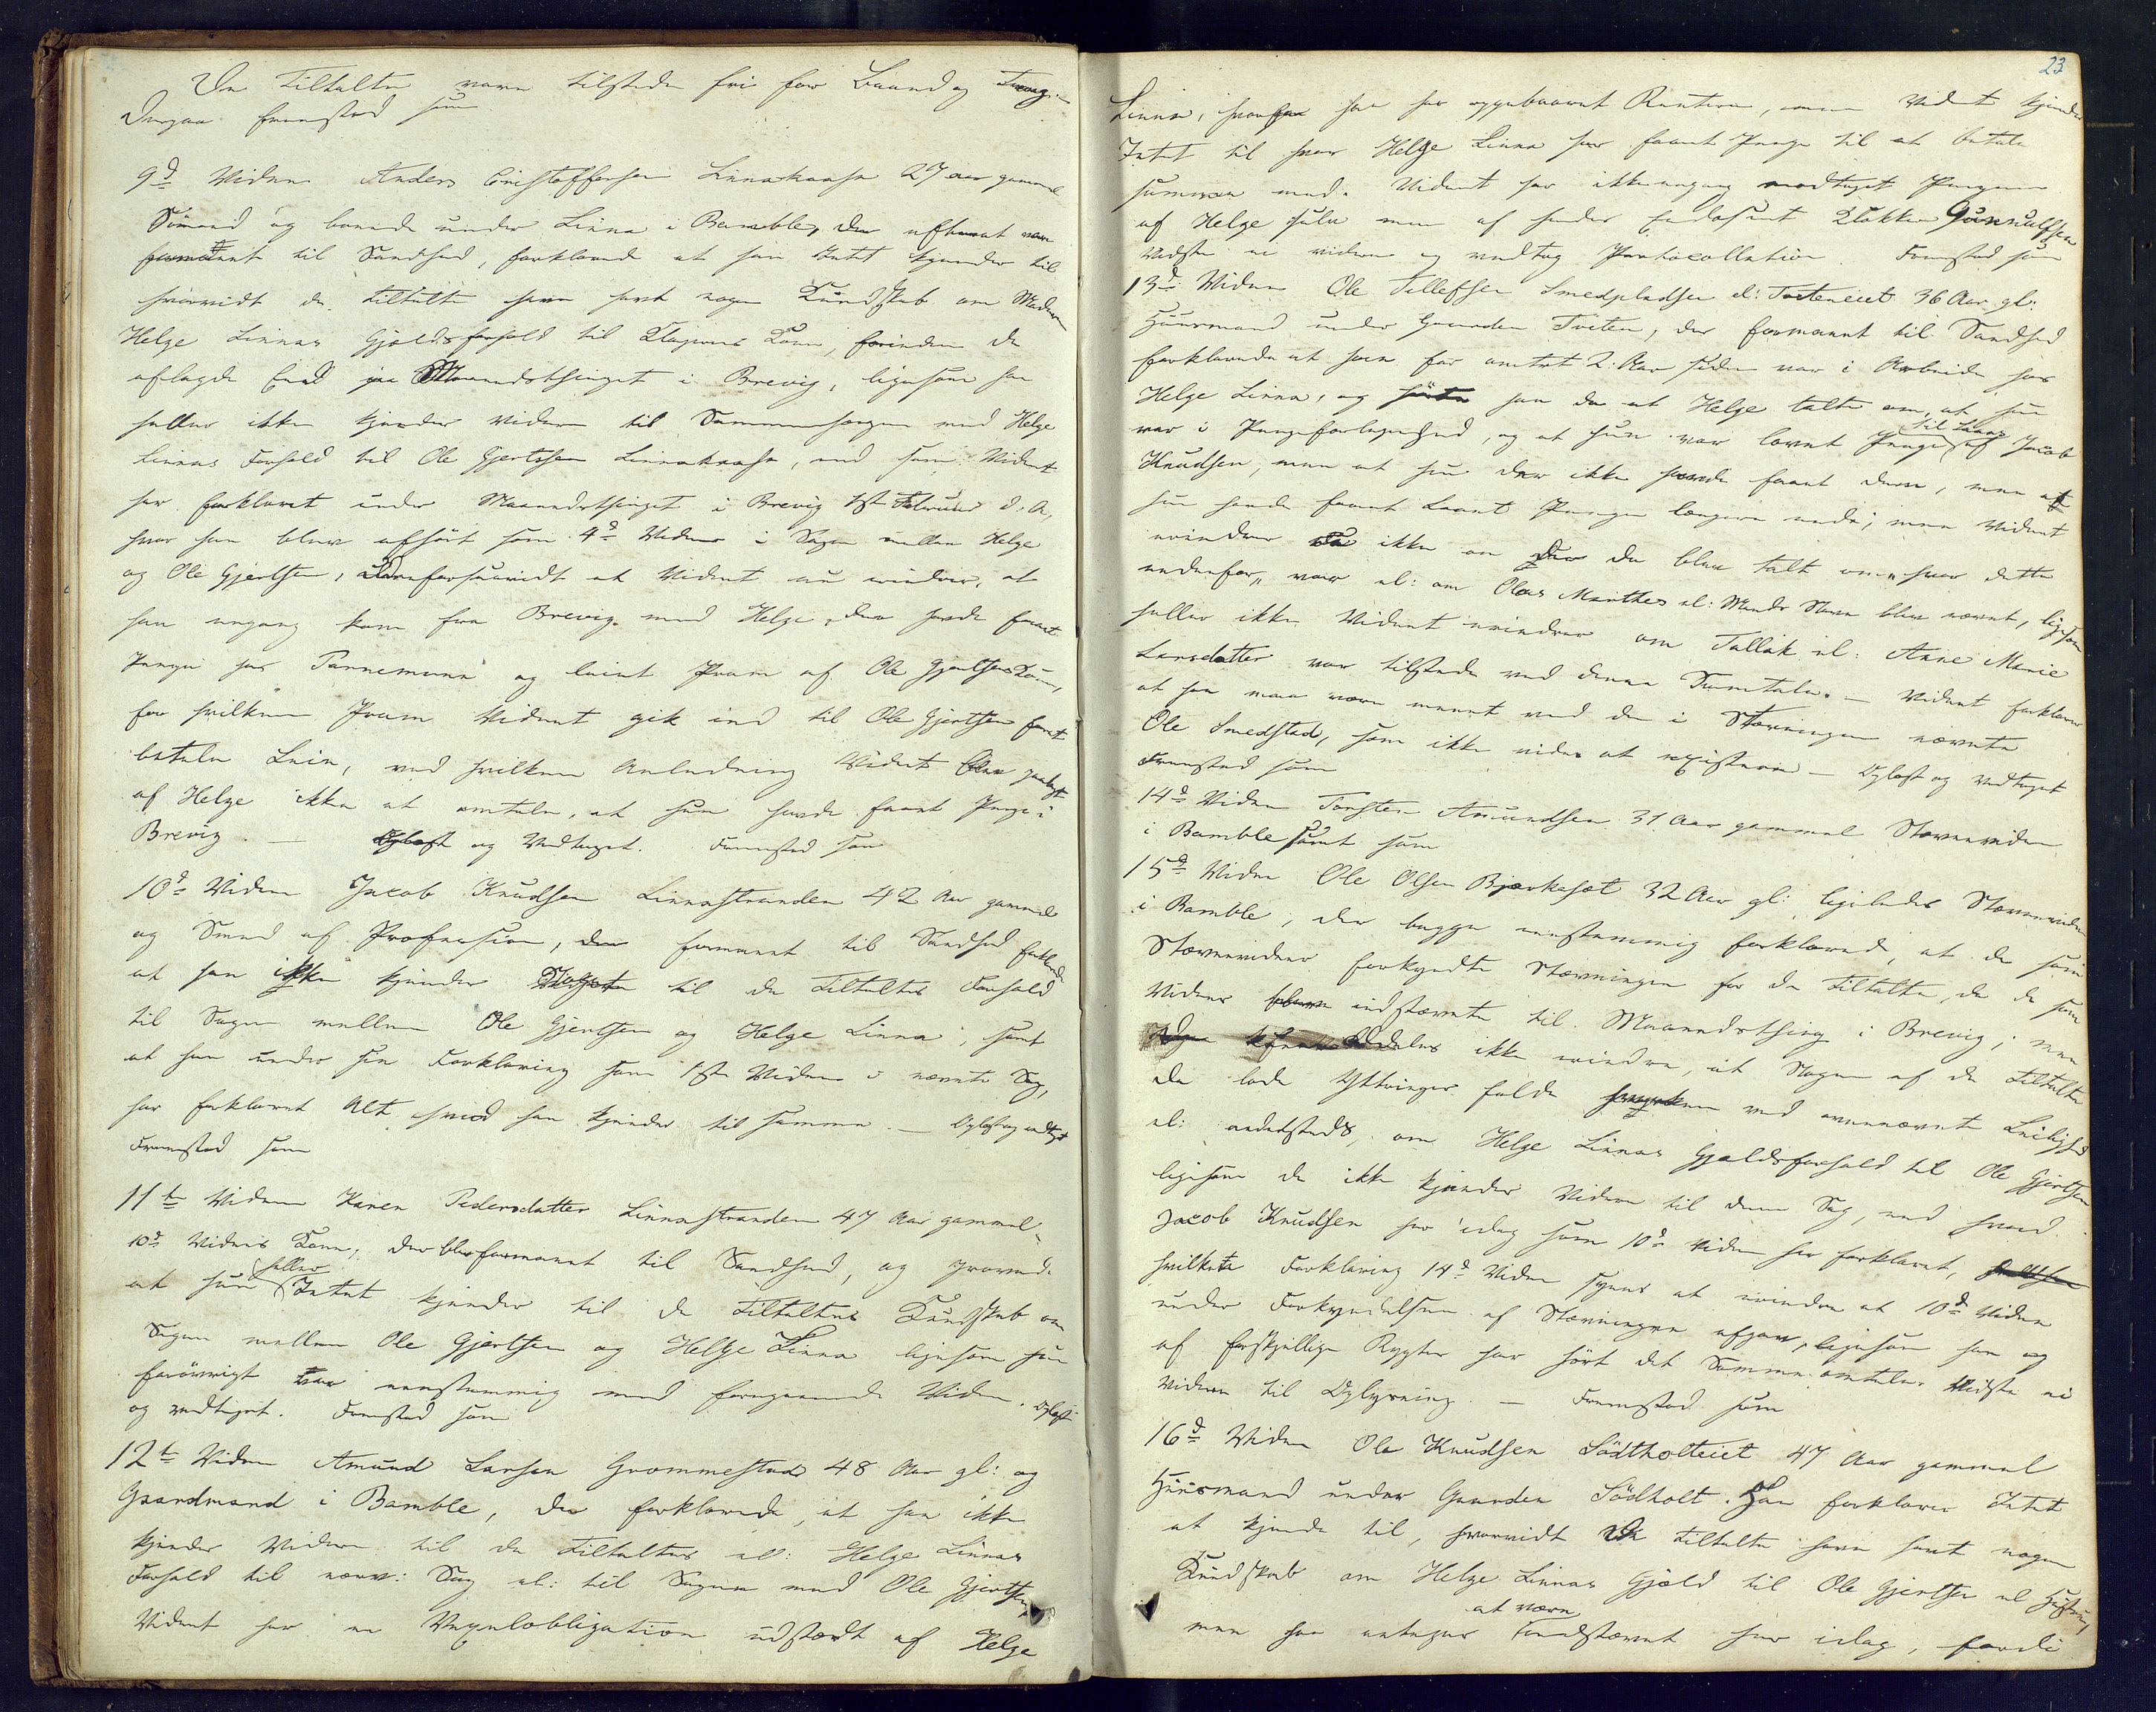 De Tiltalte vare tilstede fri for Baand og Tvang.
Derpaa fremstod som
9d Vidne Anders Christoffersen Linnakaasa 27 aar gammel
Sömand og boende under Linna i Bamble, der efterat være
formanet til Sandhed, forklarede at han Intet kjender til
hvorvidt de Tiltalte have havt nogen Kundskab om Madame
Helge Linnas Gjældsforhold til Klagerens Kone, forinden de
aflagde Eed paa Maanedsthinget i Brevig, ligesom han
heller ikke kjender videre til Sammenhengen med Helge
Linnas Forhold til Ole Gjertsen Linnakaasa, end som Vidnet
har forklaret under Maanedsthinget i Brevig 1st Februar d. A,
hvor han blev afhört som 4d Vidne i Sagen mellem Helge
og Ole Gjertsen, forsaavidt at Vidnet nu erindrer, at
han engang kom fra Brevig med Helge, der havde faaet
Penge hos Pannemann og leiet Pram af Ole Gjertsens Kone,
for hvilken Pram Vidnet gik ind til Ole Gjertsen for at
betale Leie, ved hvilken Anledning Vidnet blev paalagt
af Helge ikke at omtale, at hun havde faaet Penge i
Brevig. — Oplæst og Vedtaget. Fremstod som
10d Vidne Jacob Knudsen Linnastranden 42 Aar gammel
og Smed af Profession, der formanet til Sandhed forklarede
at han ikke kjender til de Tiltaltes Forhold
til Sagen mellem Ole Gjertsen og Helge Linna, samt
at han under sin Forklaring som 1ste Vidne i nævnte Sag,
har forklaret Alt hvad han kjender til samme. — Oplæst og vedtaget
Fremstod som
11te Vidne Karen Pedersdatter Linnastranden 47 Aar gammel,
10d Vidnes Kone, der blev formanet til Sandhed, og provede
at hun heller Intet kjender til de Tiltaltes Kundskab om
Sagen mellem Ole Gjertsen og Helge Linna ligesom hun
forövrigt var eenstemmig med foregaaende Vidne. Oplæst
og vedtaget. Fremstod som
12te Vidne Amund Larsen Grommestad 48 Aar gl: og
Gaardmand i Bamble, der forklarede, at han ikke
kjender Videre til de Tiltaltes el: Helge Linnas
Forhold til nærv: Sag el: til Sagen med Ole Gjertsen,
Vidnet har en Vexelobligation udstædt af Helge
23
Linna, hvorfor han har oppebaaret Renterne, men Vidnet kjender
Intet til hvor Helge Linna har faaet Penge til at betale
summen med. Vidnet har ikke engang modtaget Pengene
af Helge selv men af hendes Klokker Gunnulfsen
Vidste ei videre og vedtog Protocollation. Fremstod som
13d Vidne Ole Tellefsen Smedpladsen el: Tveteneiet 36 Aar gl:
Huusmand under Gaarden Tveten, der formanet til Sandhed
forklarede at han for omtrt 2. Aar siden var i Arbeide hos
Helge Linna, og hörte han da at Helge talte om, at hun
var i Pengeforlegenhed, og at hun var lovet Penge til Laans af Jacob
Knudsen, men at hun der ikke havde faaet dem, men at
hun havde faaet Laant Penge længere nede; men Vidnet
erindrer ikke om der da blev talt om hvor dette
nedenfor var el: om Oles Marthes el: Mands Navn blev nævnt, ligesom
heller ikke Vidnet erindrer om Tallak el: Anne Marie
Larsdatter var tilstede ved denne Samtale. — Vidnet forklarer
at han maa være meent med den i Stævningen nævnte
Ole Smedstad, som ikke vides at existere. — Oplæst og Vedtaget
Fremstod som
14d Vidne Torsten Amundsen 31 Aar gammel Stævnevidne
i Bamble samt som
15d Vidne Ole Olsen Bjerkeset 32 Aar gl: ligeledes Stævnevidne
i Bamble, der begge eenstemmig forklarede, at de som
Stævnevidner forkyndte Stævningen for de Tiltalte, da de som
Vidner bleve indstævnte til Maanedsthing i Brevig; men
ikke erindre, at Nogen af de Tiltalte
da lode Yttringer falde ved ovennævnte Leilighed
el: andetsteds, om Helge Linnas Gjældsforhold til Ole Gjertsen
ligesom de ikke kjender Videre til denne Sag, end hvad
Jacob Knudsen her idag som 10de Vidne har forklaret,
hvilken Forklaring 14d Vidne synes at erindre at 10d Vidne
under Forkyndelsen af Stævningen afgav, ligesom han og
af forskjellige Rygter har hört det Samme omtale. Vidste ei
Videre til Oplysning. — Fremstod som
16d Vidne Ole Knudsen Södtholteiet 47 Aar gammel
Huusmand under Gaarden Södholt. Han forklarer Intet
at kjende til, hvorvidt de Tiltalte have havt nogen
Kundskab om Helge Linnas Gjæld til Ole Gjertsen el Hustru,
men han antager at være indstævnet her idag, fordi